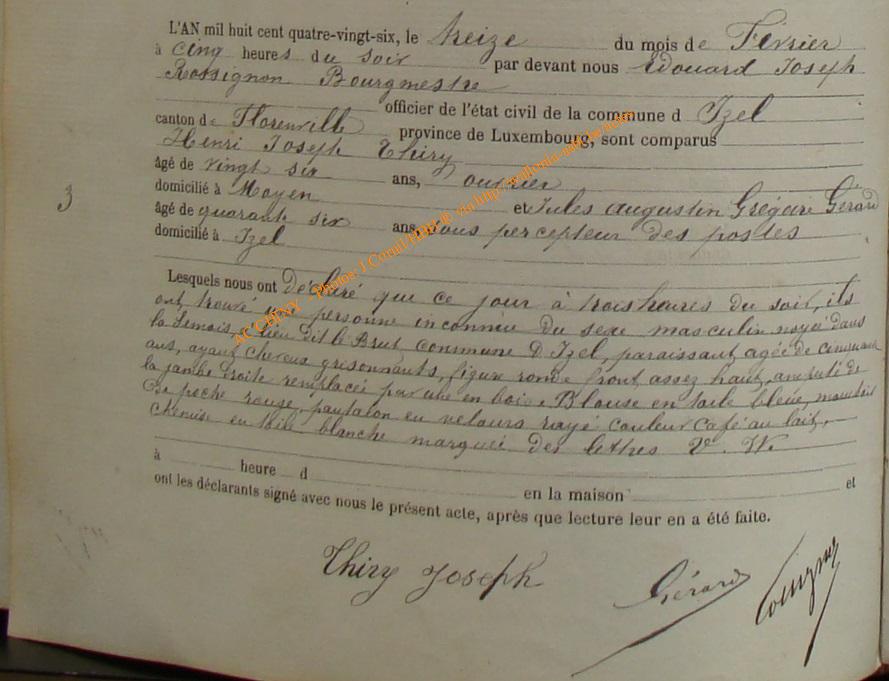 L'AN mil huit cent quatre-vingt-six, le treize du mois de Février
à cinq heures du soir par devant nous Edouard Joseph
Rossignon Bourgmestre
officier de l'état civil de la commune d Izel
canton de Florenville province de Luxembourg, sont comparus
Henri Joseph Thiry
âgé de vingt six ans, ouvrier
domicilié à Moyen et Jules augustin Grégoire Gérard
âgé de quarante six ans, sous percepteur des postes
domicilié à Izel
3
Lesquels nous ont déclaré que ce jour à trois heures du soir, ils
ont trouvé une personne inconnue du sexe masculin noyé dans
la Semois, lieu dit le Brut commune d'Izel, paraissant agée de cinquante
ans, ayant cheveux grisonnants, figure ronde front assez haut, amputé de
la jambe droite remplacée par une en bois. Blouse en toile bleue, mouchoir
de poche rouge, pantalon en velours rayé couleur café au lait,
chemise en toile blanche marquée des lettres V. W.
à heure d en la maison et
ont les déclarants signé avec nous le présent acte, après que lecture leur en a été faite.
Thiry Joseph
Gérard
ACCHINY - Photos J Cornil-HAPI © via http://wallonia-